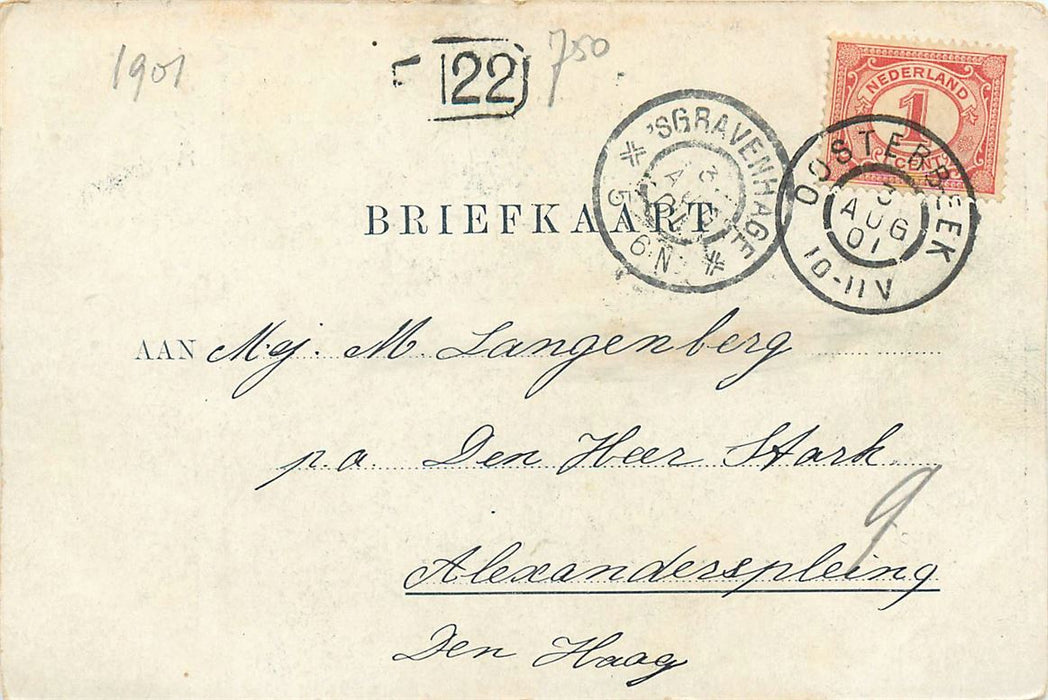 1901
22
750
NEDERLAND
1
CENT
'SGRAVENHAGE
3
AUG
01
5-6N
OOSTERBEEK
3
AUG
01
10-11V
BRIEFKAART
AAN Mej. M. Langenberg
p.a. Den Heer Stark
9
Alexanderspleing
Den Haag